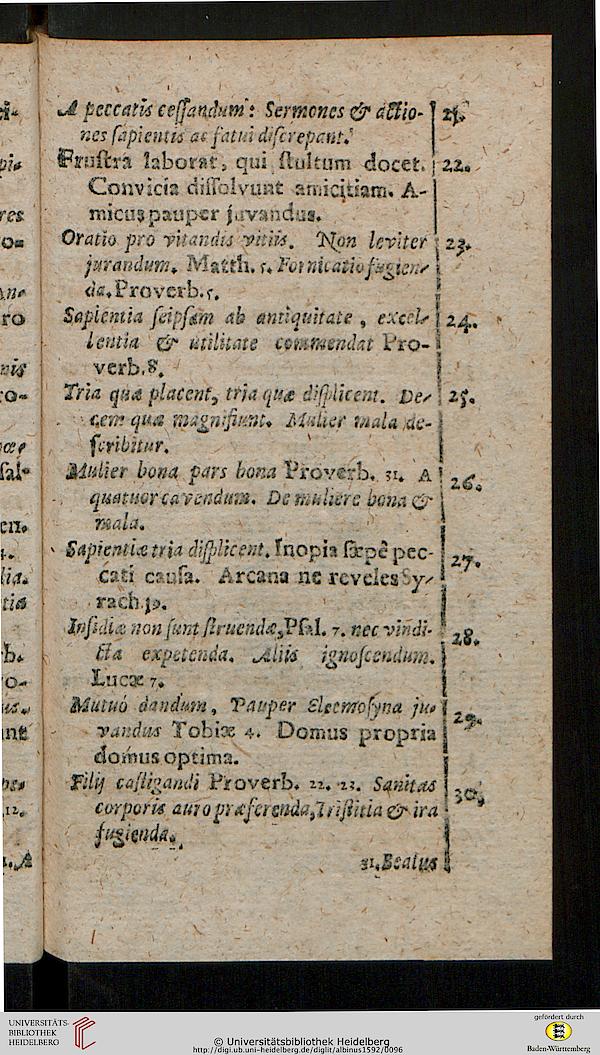 A peccatis cessandum: Sermones & actio- 21.
nes sapientis ac fatui discrepant.
Frustra laborat, qui stultum docet. 22.
Convicia dissolvunt amicitiam. A-
micus pauper juvandus.
Oratio pro vitandis vitiis. Non leviter 23.
jurandum. Matth. 5. Fornicatio fugien-
da. Proverb. 5.
Sapientia seipsam ab antiquitate, excel- 24.
lentia & utilitate commendat Pro-
verb. 8.
Tria quæ placent, tria quæ displicent. De- 25.
cem quæ magnifiunt. Mulier mala de-
scribitur.
Mulier bona pars bona Proverb. 31. A 26.
quatuor cavendum. De muliere bona &
mala.
Sapientiæ tria displicent. Inopia sæpè pec- 27.
cati causa. Arcana ne reveles Sy-
rach. 19.
Insidiæ non sunt struendæ, Psal. 7. nec vindi- 28.
cta expetenda. Aliis ignoscendum.
Lucæ 7.
Mutuò dandum, Pauper Eleemosyna ju- 29.
vandus Tobiæ 4. Domus propria
domus optima.
Filij castigandi Proverb. 22. 23. Sanitas 30.
corporis auro præferenda, Tristitia & ira
fugienda.
31. Beatus
UNIVERSITÄTS-
BIBLIOTHEK
HEIDELBERG
© Universitätsbibliothek Heidelberg
http://digi.ub.uni-heidelberg.de/diglit/albinus1592/0096
gefördert durch
Baden-Württemberg